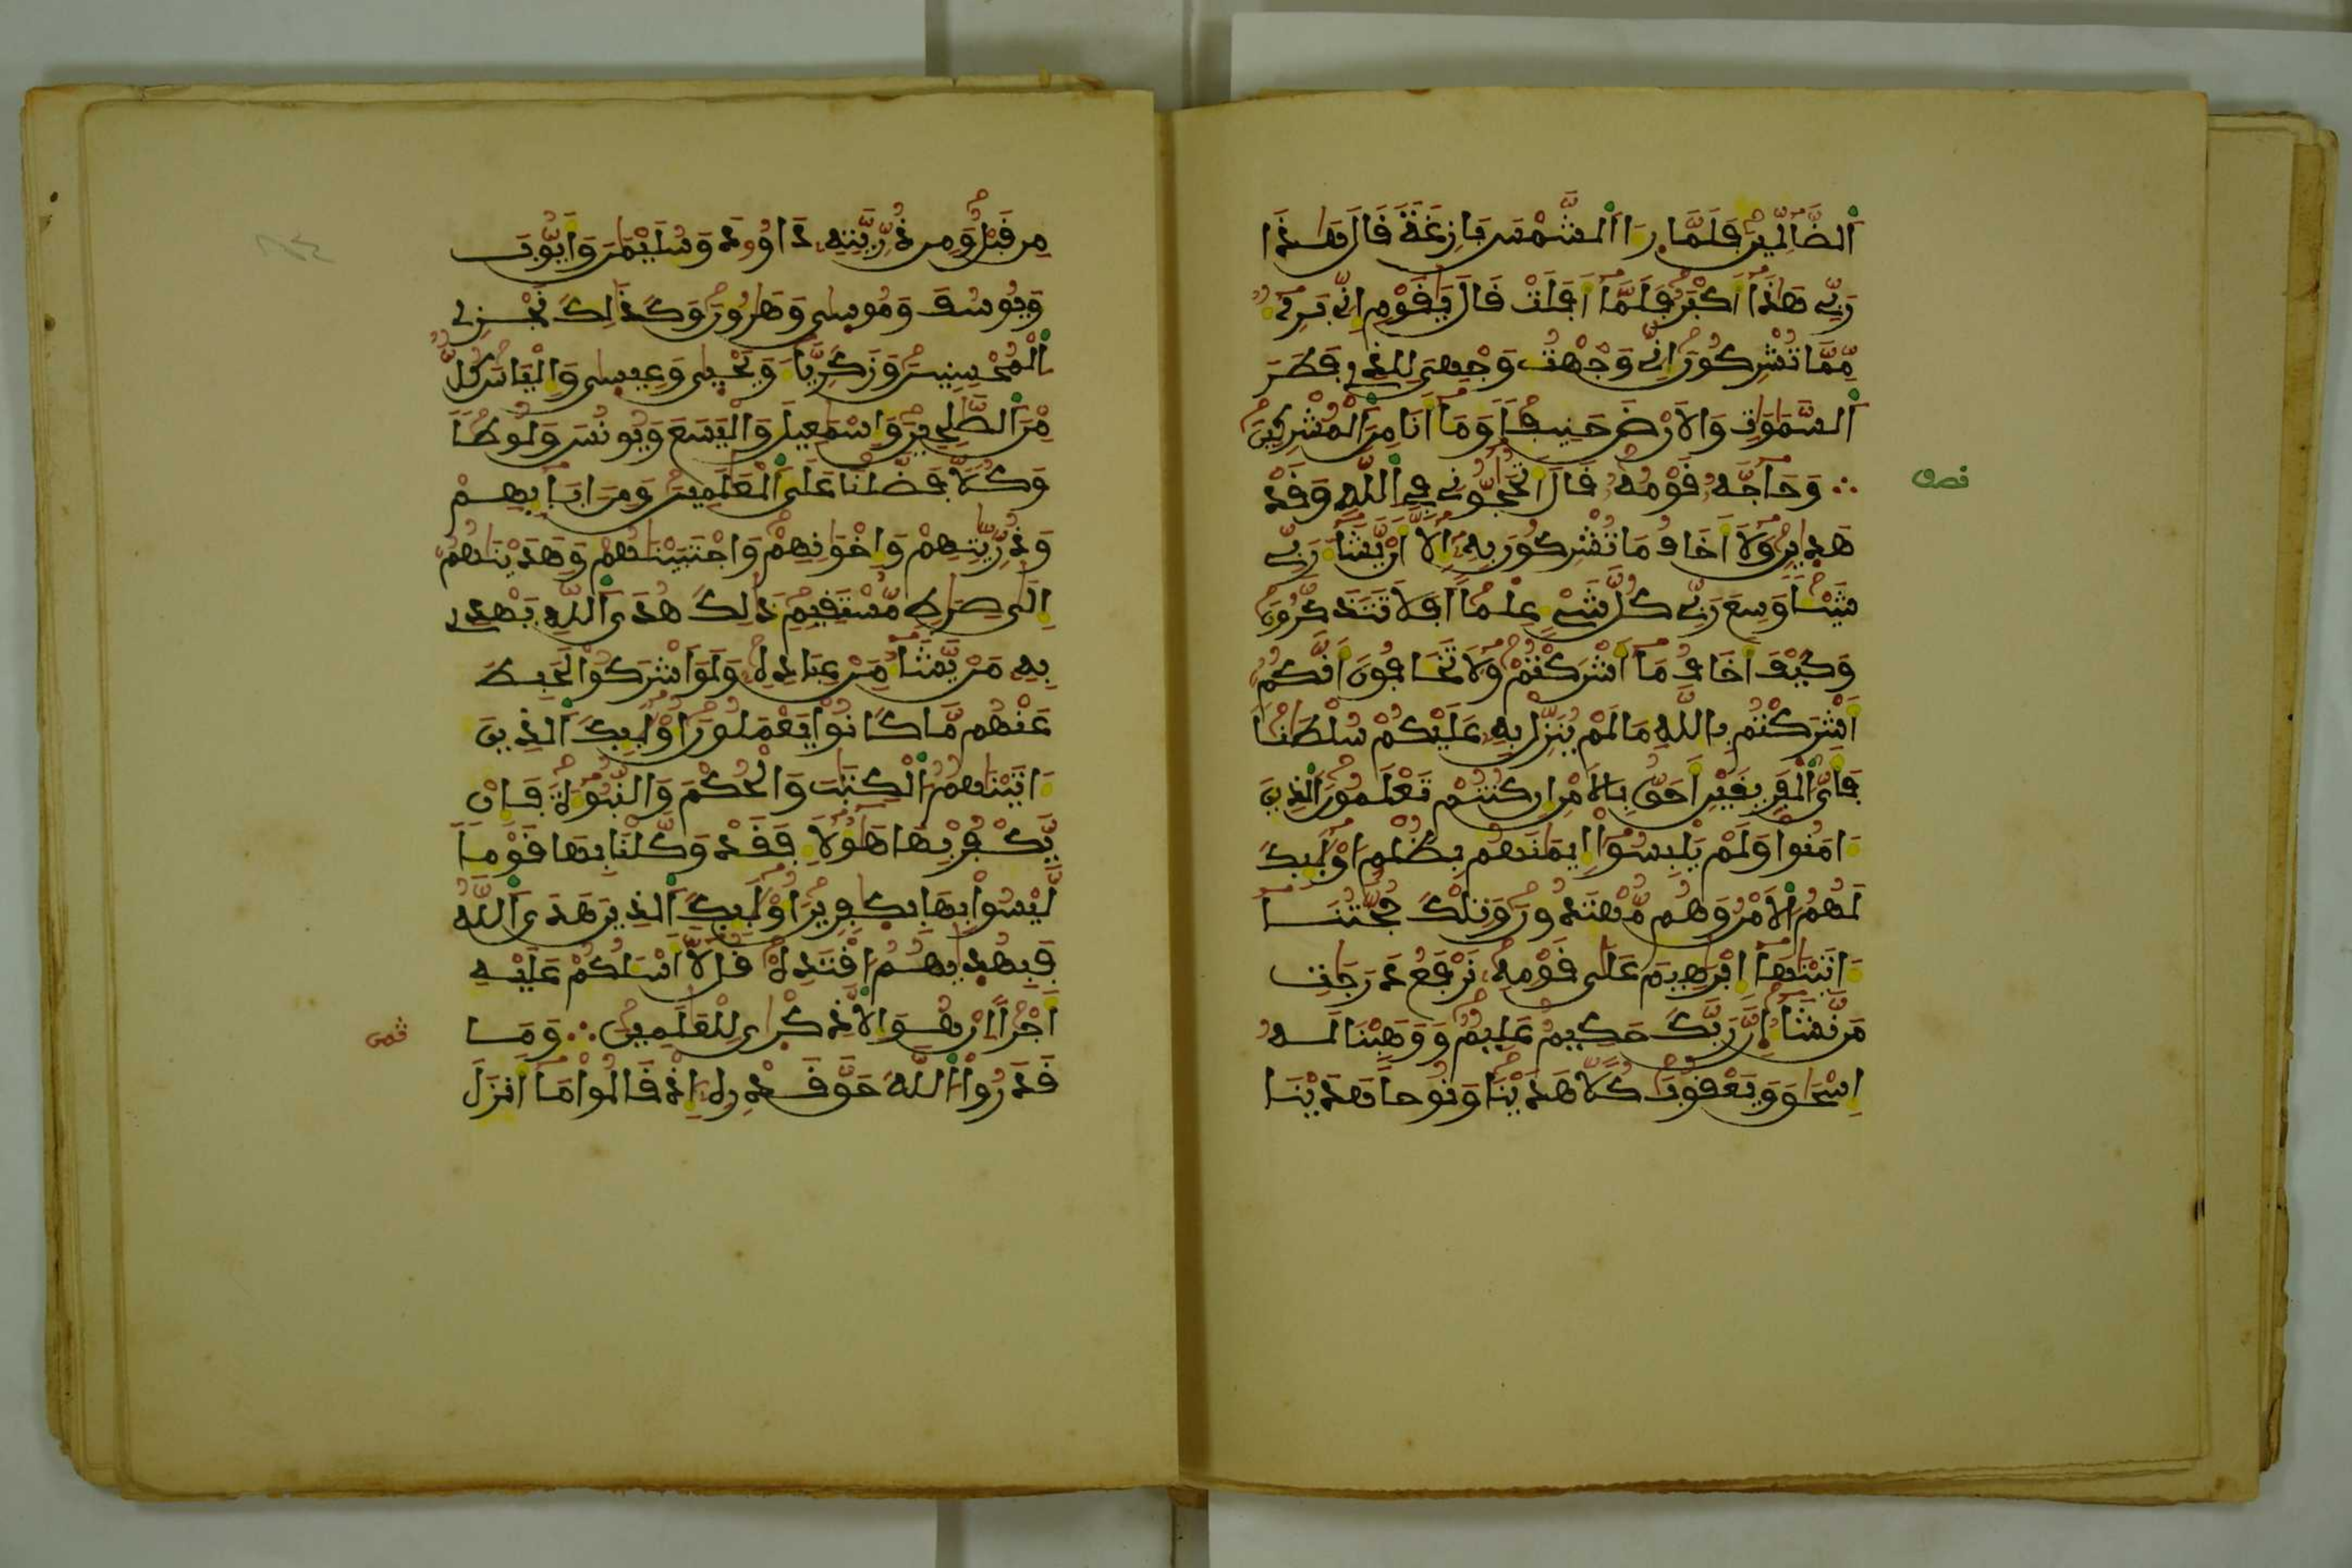 اَلضَّآلِّينَ فَلَمَّا رَءَا اَلشَّمْسَ بَازِغَةً قَالَ هَذَا
رَبِّي هَذَا أَكْبَرُ فَلَمَّا أَفَلَتْ قَالَ يَقَوْمِ إِنِّي بَرِيٓءٌ
مِّمَّا تُشْرِكُونَ إِنِّي وَجَّهْتُ وَجْهِيَ لِلذِي فَطَرَ
اَلسَّمَوَتِ وَالاَرْضَ حَنِيفاً وَمَا أَنَا مِنَ اَلْمُشْرِكِينَ
وَحَاجَّهُ قَوْمُهُ قَالَ أَتُحَجُّونِي فِي اِللَّهِ وَقَدْ
هَدَينِ وَلاَ أَخَافُ مَا تُشْرِكُونَ بِهِ إِلاَّ أَنْ يَّشَاءَ رَبِّي
شَيْئاً وَسِعَ رَبِّي كُلَّ شَيْءٍ عِلْماً أَفَلاَ تَتَذَكَّرُونَ
وَكَيْفَ أَخَافُ مَا أَشْرَكْتُمْ وَلاَ تَخَافُونَ أَنَّكُمُ
أَشْرَكْتُم بِاللَّهِ مَا لَمْ يُنَزِّلْ بِهِ عَلَيْكُمْ سُلْطَناً
فَأَيُّ اَلْفَرِيقَيْنِ أَحَقُّ بِالاَمْنِ إِن كُنتُمْ تَعْلَمُونَ اَلذِينَ
ءَامَنُوا وَلَمْ يَلْبِسُوا إِيمَنَهُم بِظُلْمٍ أُوْلَئِكَ
لَهُمُ اُلاَمْنُ وَهُم مُّهْتَدُونَ وَتِلْكَ حُجَّتُنَا
ءَاتَيْنَهَا إِبْرَهِيمَ عَلَى قَوْمِهِ نَرْفَعُ دَرَجَتِ
مَن نَّشَاءُ إِنَّ رَبَّكَ حَكِيمٌ عَلِيمٌ وَوَهَبْنَا لَهُ
إِسْحَقَ وَيَعْقُوبَ كُلاًّ هَدَيْنَا وَنُوحاً هَدَيْنَا
نصف
مِن قَبْلُ وَمِن ذُرِّيَّتِهِ دَاوُودَ وَسُلَيْمَنَ وَأَيُّوبَ
وَيُوسُفَ وَمُوسَى وَهَرُونَ وَكَذَلِكَ نَجْزِي
اِلْمُحْسِنِينَ وَزَكَرِيَّاءَ وَيَحْيَى وَعِيسَى وَإِلْيَاسَ كُلٌّ
مِّنَ اَلصَّلِحِينَ وَإِسْمَعِيلَ وَالْيَسَعَ وَيُونُسَ وَلُوطاً
وَكُلاًّ فَضَّلْنَا عَلَى اَلْعَلَمِينَ وَمِنَ ابَائِهِمْ
وَذُرِّيَّتِهِمْ وَإِخْوَنِهِمْ وَاجْتَبَيْنَهُمْ وَهَدَيْنَهُمُ
إِلَى صِرَطٍ مُّسْتَقِيمٍ ذَلِكَ هُدَى اَللَّهِ يَهْدِي
بِهِ مَن يَّشَاءُ مِنْ عِبَادِهِ وَلَوَ اَشْرَكُوا لَحَبِطَ
عَنْهُم مَّا كَانُوا يَعْمَلُونَ أُوْلَئِكَ اَلذِينَ
ءَاتَيْنَهُمُ اُلْكِتَبَ وَالْحُكْمَ وَالنُّبُوءَةَ فَإِنْ
يَّكْفُرْ بِهَا هَؤُلاَءِ فَقَدْ وَكَّلْنَا بِهَا قَوْماً
لَّيْسُوا بِهَا بِكَفِرِينَ أُوْلَئِكَ اَلذِينَ هَدَى اَللَّهُ
فَبِهُدَيهُمُ اُقْتَدِهْ قُل لاَّ أَسْئَلُكُمْ عَلَيْهِ
أَجْراً إِنْ هُوَ إِلاَّ ذِكْرَى لِلْعَلَمِينَ وَمَا
قَدَرُوا اُللَّهَ حَقَّ قَدْرِهِ إِذْ قَالُوا مَا أَنزَلَ